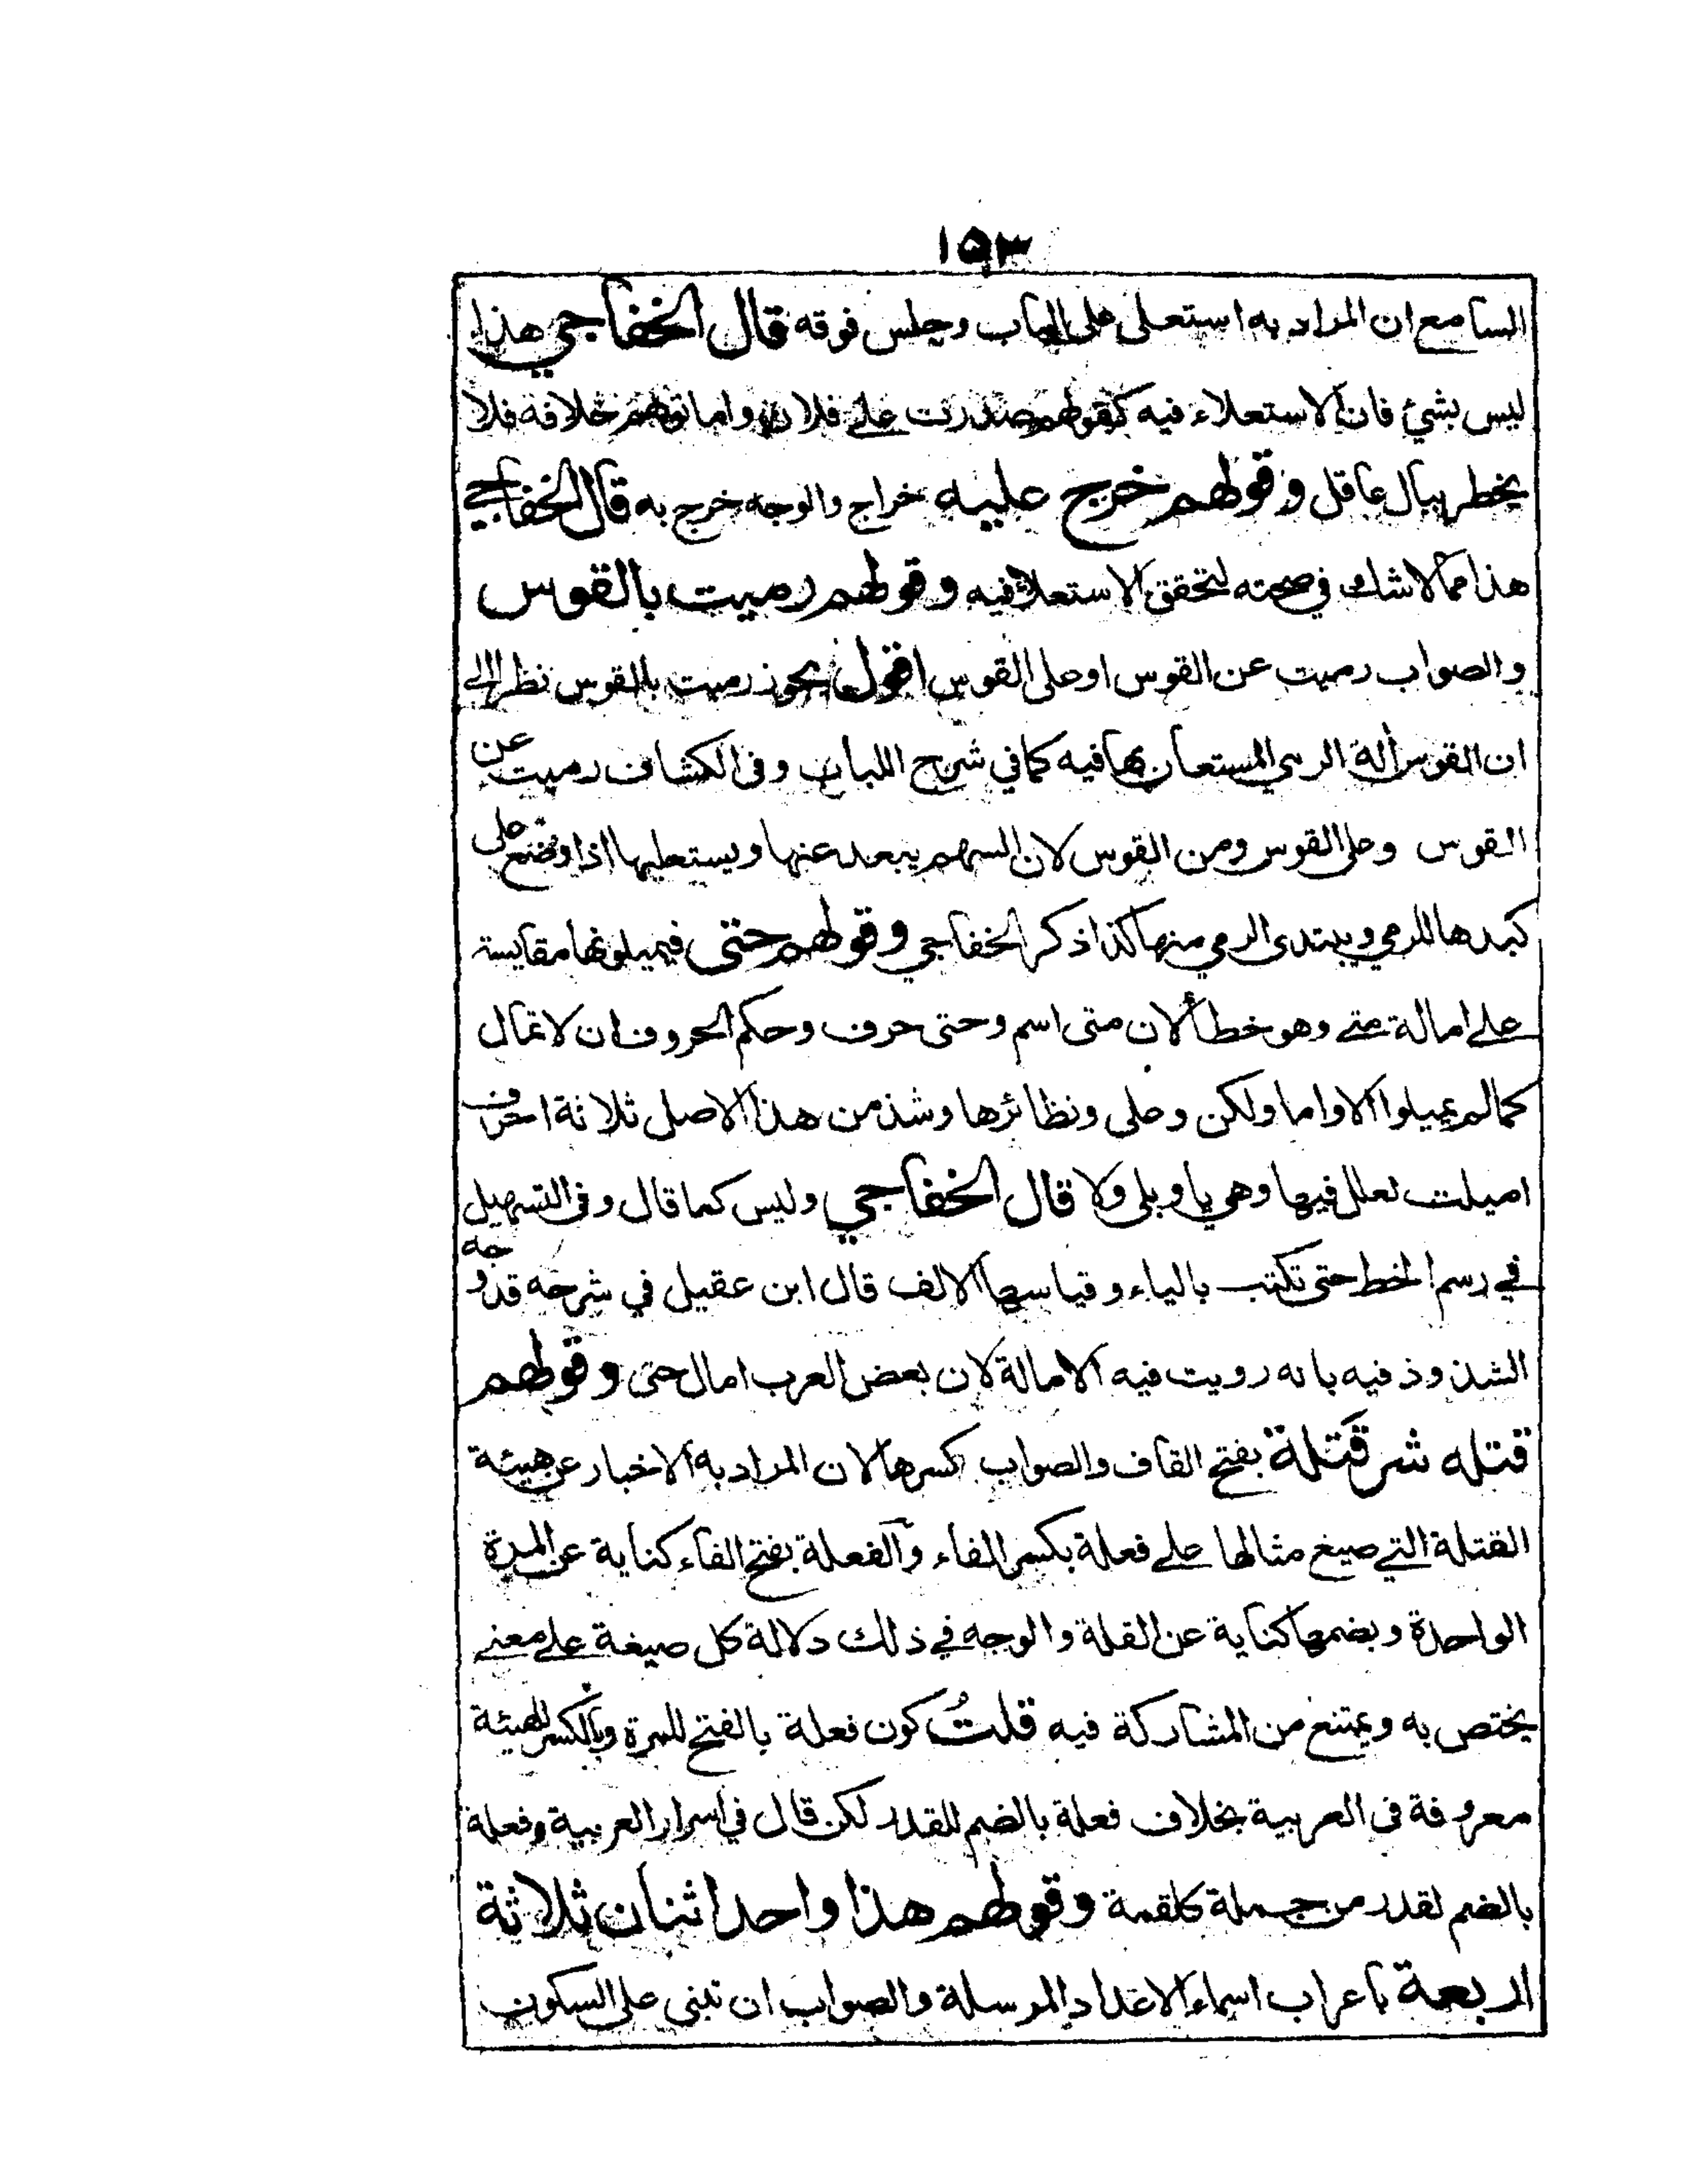 ١٥٣
السامع ان المراد به استعلى على الباب وجلس فوقه قال الخفاجي هذا
ليس بشئ فان الاستعلاء فيه كقولهم صدرت على فلان واما توهم خلافه فلا
يخطر ببال عاقل وقولهم خرج عليه خراج والوجه خرج به قال الخفاجي
هذا مما لا شك في صحته لتحقق الاستعلاء فيه وقولهم رميت بالقوس
والصواب رميت عن القوس او على القوس اقول يجوز رميت بالقوس نظرا الى
ان القوس ألة الرمي المستعان بها فيه كما في شرح اللباب وفى الكشاف رميت عن
القوس وعلى القوس ومن القوس لان السهم يبعد عنها ويستعليها اذا وضع على
كبدها للرمي ويبتدى الرمي منها كذا ذكر الخفاجي وقولهم حتى فيميلونها مقايسة
على امالة متى وهو خطأ لان متى اسم وحتى حرف وحكم الحروف ان لا تمال
كما لم يميلوا الا واما ولكن وعلى ونظائرها وشذ من هذا الاصل ثلاثة احرف
اميلت لعلل فيها وهي يا وبلى ولا قال الخفاجي وليس كما قال وفى التسهيل
في رسم الخط حتى تكتب بالياء وقياسها الالف قال ابن عقيل في شرحه قد وجه
الشذوذ فيه بانه رويت فيه الامالة لان بعض العرب امال حتى وقولهم
قتله شر قَتلة بفتح القاف والصواب كسرها لان المراد به الاخبار عن هيئة
القتلة التي صيغ مثالها على فعلة بكسر الفاء والفعلة بفتح الفاء كناية عن المرة
الواحدة وبضمها كناية عن القلة والوجه في ذلك دلالة كل صيغة على معنى
يختص به ويمتنع من المشاركة فيه قلتُ كون فعلة بالفتح للمرة وبالكسر للهيئة
معروفة فى العربية بخلاف فعلة بالضم للقدر لكن قال في اسرار العربية وفعلة
بالضم لقدر من جملة كلقمة وقولهم هذا واحد اثنان ثلاثة
اربعة باعراب اسماء الاعداد المرسلة والصواب ان تبنى على السكون